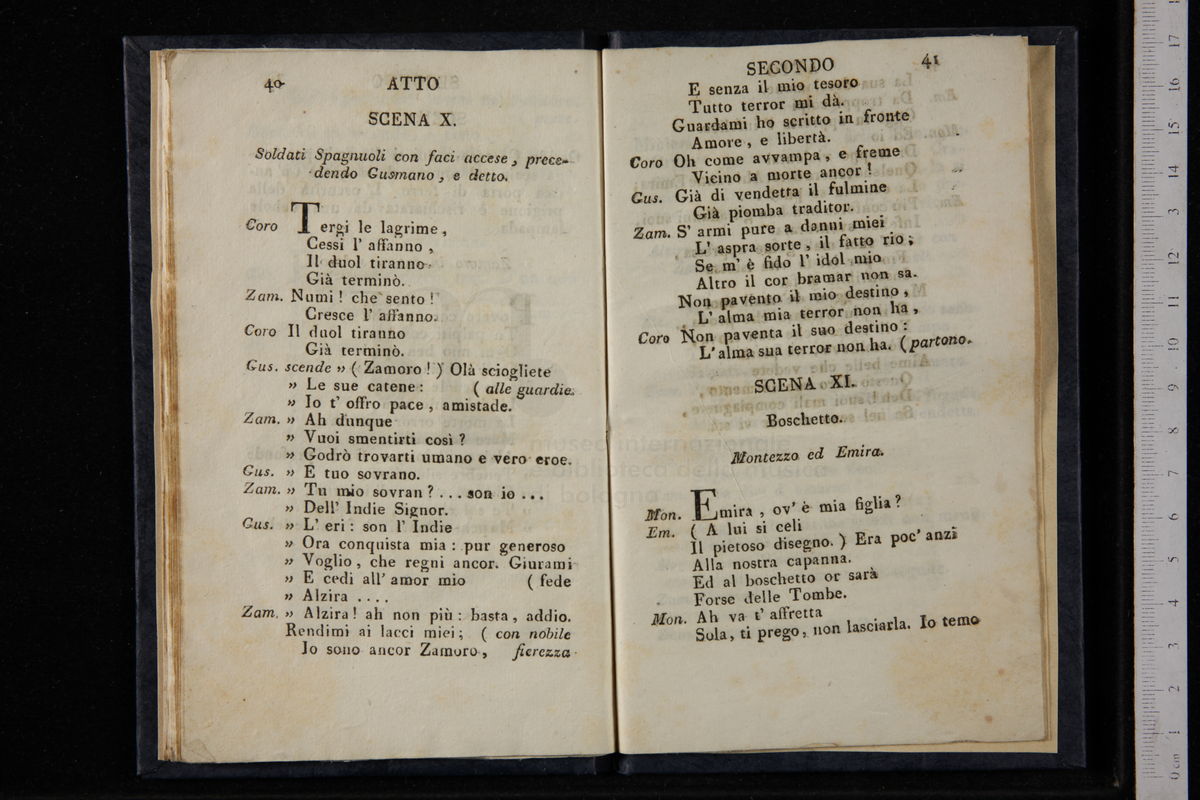 40 ATTO
SCENA X.
Soldati Spagnuoli con faci accese, prece-
dendo Gusmano, e detto.
Coro Tergi le lagrime,
Cessi l' affanno,
Il duol tiranno
Già terminò.
Zam. Numi! che sento!
Cresce l' affanno.
Coro Il duol tiranno
Già terminò.
Gus. scende » ( Zamoro! ) Olà sciogliete
» Le sue catene: ( alle guardie.
» Io t' offro pace, amistade.
Zam. » Ah dunque
» Vuoi smentirti così?
» Godrò trovarti umano e vero eroe.
Gus. » E tuo sovrano.
Zam. » Tu mio sovran? ... son io ...
» Dell' Indie Signor.
Gus. » L' eri: son l' Indie
» Ora conquista mia: pur generoso
» Voglio, che regni ancor. Giurami
» E cedi all' amor mio ( fede
» Alzira ....
Zam. » Alzira! ah non più: basta, addio.
Rendimi ai lacci miei; ( con nobile
Io sono ancor Zamoro, fierezza
SECONDO 41
E senza il mio tesoro
Tutto terror mi dà.
Guardami ho scritto in fronte
Amore, e libertà.
Coro Oh come avvampa, e freme
Vicino a morte ancor!
Gus. Già di vendetta il fulmine
Già piomba traditor.
Zam. S' armi pure a danni miei
L' aspra sorte, il fatto rio;
Se m' è fido l' idol mio
Altro il cor bramar non sa.
Non pavento il mio destino,
L' alma mia terror non ha,
Coro Non paventa il suo destino:
L' alma sua terror non ha. (partono.
SCENA XI.
Boschetto.
Montezzo ed Emira.
Mon. Emira, ov' è mia figlia?
Em. ( A lui si celi
Il pietoso disegno. ) Era poc' anzi
Alla nostra capanna.
Ed al boschetto or sarà
Forse delle Tombe.
Mon. Ah va t' affretta
Sola, ti prego, non lasciarla. Io temo
museo internazionale
biblioteca della musica
di bologna